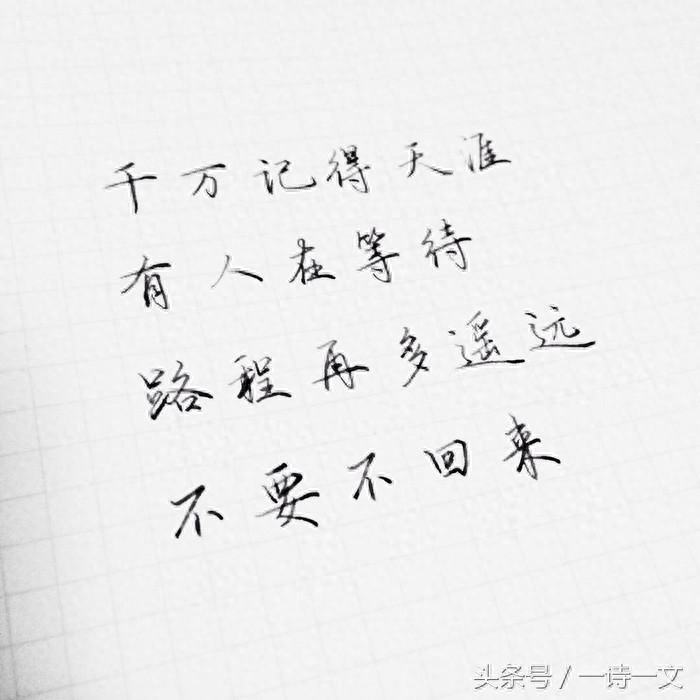 千万记得天涯
有人在等待
路程再多遥远
不要不回来
头条号／一诗一文